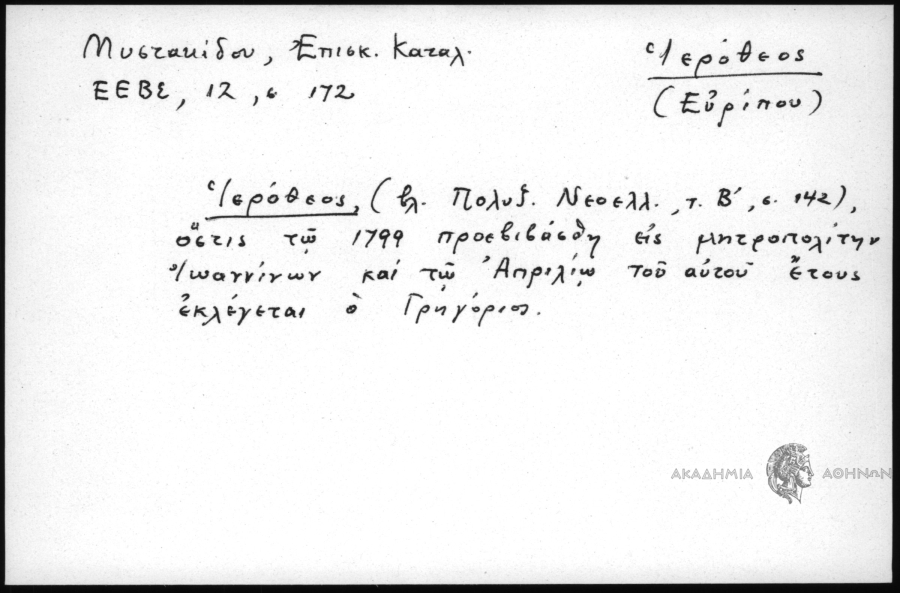 Μυστακίδου, Ἐπισκ. Καταλ.
ΕΕΒΣ, 12, σ 172
Ἱερόθεος
(Εὐρίπου)
Ἱερόθεος, (βλ. Πολυξ. Νεοελλ., τ. Β', σ. 142),
ὅστις τῷ 1799 προεβιβάσθη εἰς μητροπολίτην
Ἰωαννίνων καί τῷ Ἀπριλίῳ τοῦ αὐτοῦ ἔτους
ἐκλέγεται ὁ Γρηγόριος.
ΑΚΑΔΗΜΙΑ ΑΘΗΝΩΝ